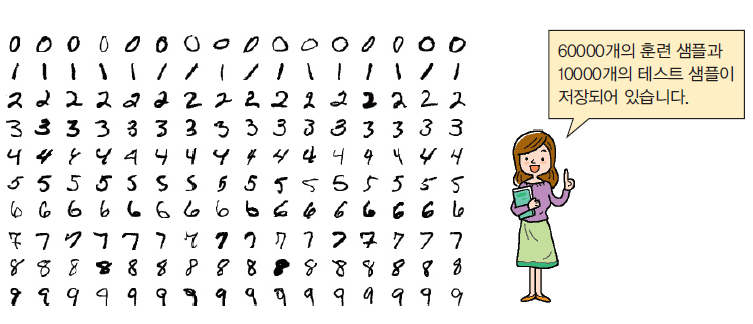 0 0 0 0 0 0 0 0 0 0 0 0 0 0 0 0
1 1 1 1 1 1 1 1 1 1 1 1 1 1 1 1
2 2 2 2 2 2 2 2 2 2 2 2 2 2 2 2
3 3 3 3 3 3 3 3 3 3 3 3 3 3 3 3
4 4 4 4 4 4 4 4 4 4 4 4 4 4 4 4
5 5 5 5 5 5 5 5 5 5 5 5 5 5 5 5
6 6 6 6 6 6 6 6 6 6 6 6 6 6 6 6
7 7 7 7 7 7 7 7 7 7 7 7 7 7 7 7
8 8 8 8 8 8 8 8 8 8 8 8 8 8 8 8
9 9 9 9 9 9 9 9 9 9 9 9 9 9 9 9
60000개의 훈련 샘플과
10000개의 테스트 샘플이
저장되어 있습니다.